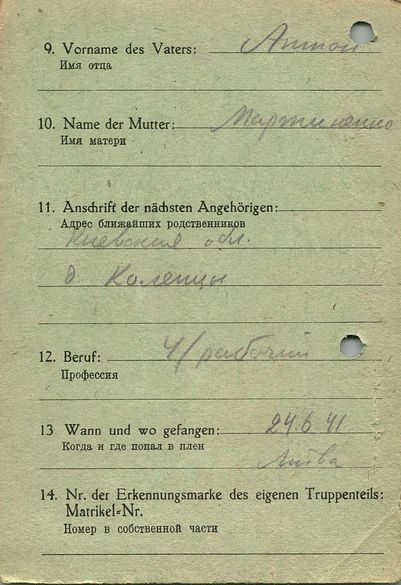 9. Vorname des Vaters: Антон
Имя отца
10. Name der Mutter: Мартиненко
Имя матери
11. Anschrift der nächsten Angehörigen:
Адрес ближайших родственников
Киевская обл.
д. Коленцы
12. Beruf: Ч/рабочий
Профессия
13 Wann und wo gefangen: 24.6 41
Когда и где попал в плен
Литва
14. Nr. der Erkennungsmarke des eigenen Truppenteils:
Matrikel=Nr.
Номер в собственной части